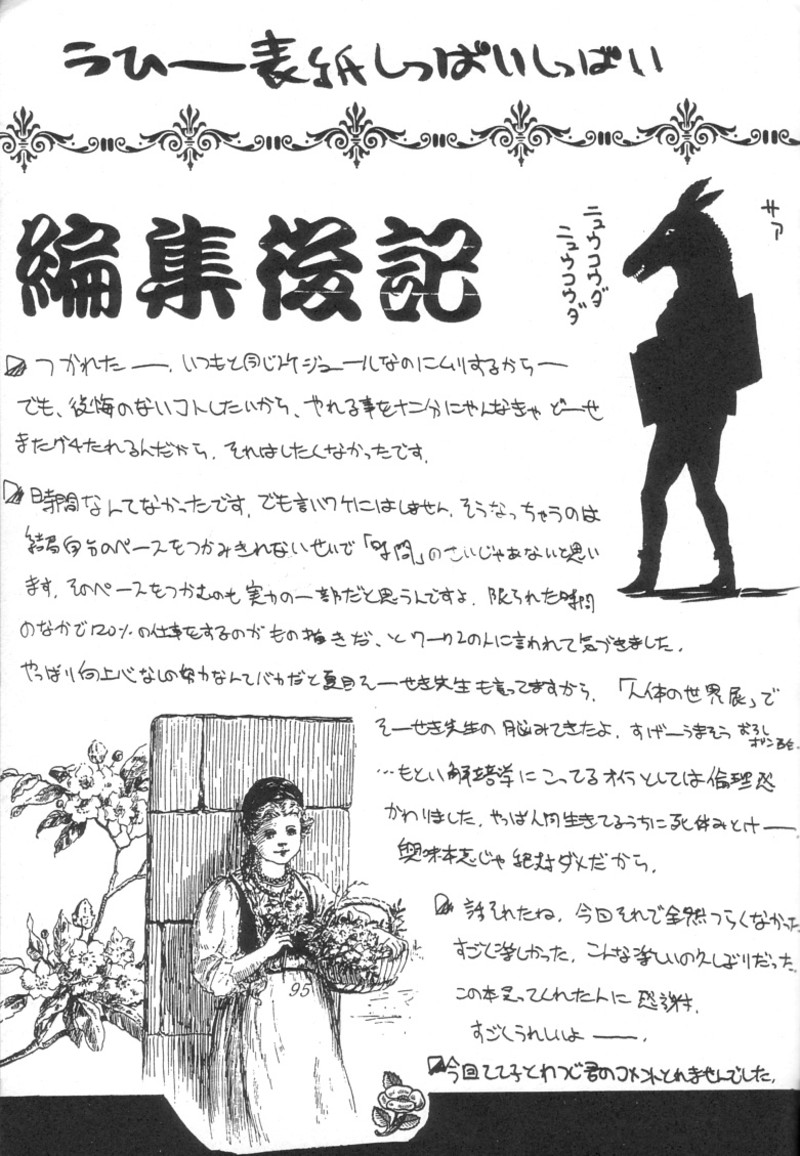 うひー表紙しっぱいしっぱい
編集後記
サァ
ニュウコウダ
ニュウコウダ
つかれたー、いつもと同じスケジュールなのにムリするからー
でも、後悔のないコトしたいから、やれる事を十二分にやんなきゃ どーせ
またグチたれるんだから、それはしたくなかったです。
時間なんてなかったです。でも言いワケにはしません。そうなっちゃうのは
結局自分のペースをつかみきれないせいで「時間」のせいじゃあないと思い
ます。そのペースをつかむのも実力の一部だと思うんですよ。限られた時間
のなかで120%の仕事をするのがもの描きだ、とワークスの人に言われて気づきました。
やっぱり向上心なしの努力なんてバカだと夏目そーせき先生も言ってますから。「人体の世界展」で
そーせき先生の脳みてきたよ。すげーうまそう
…もとい解剖学にこってるオイラとしては倫理感
かわりました。やっぱ人間生きてるうちに死体みとけー
興味本意じゃ絶対ダメだから。
話それたね。今回それで全然つらくなかった
すごく楽しかった。こんな楽しいの久しぶりだった。
この本買ってくれた人に感謝。
すごくうれしいよー。
95
今回とわつじ君のコメントとれませんでした。